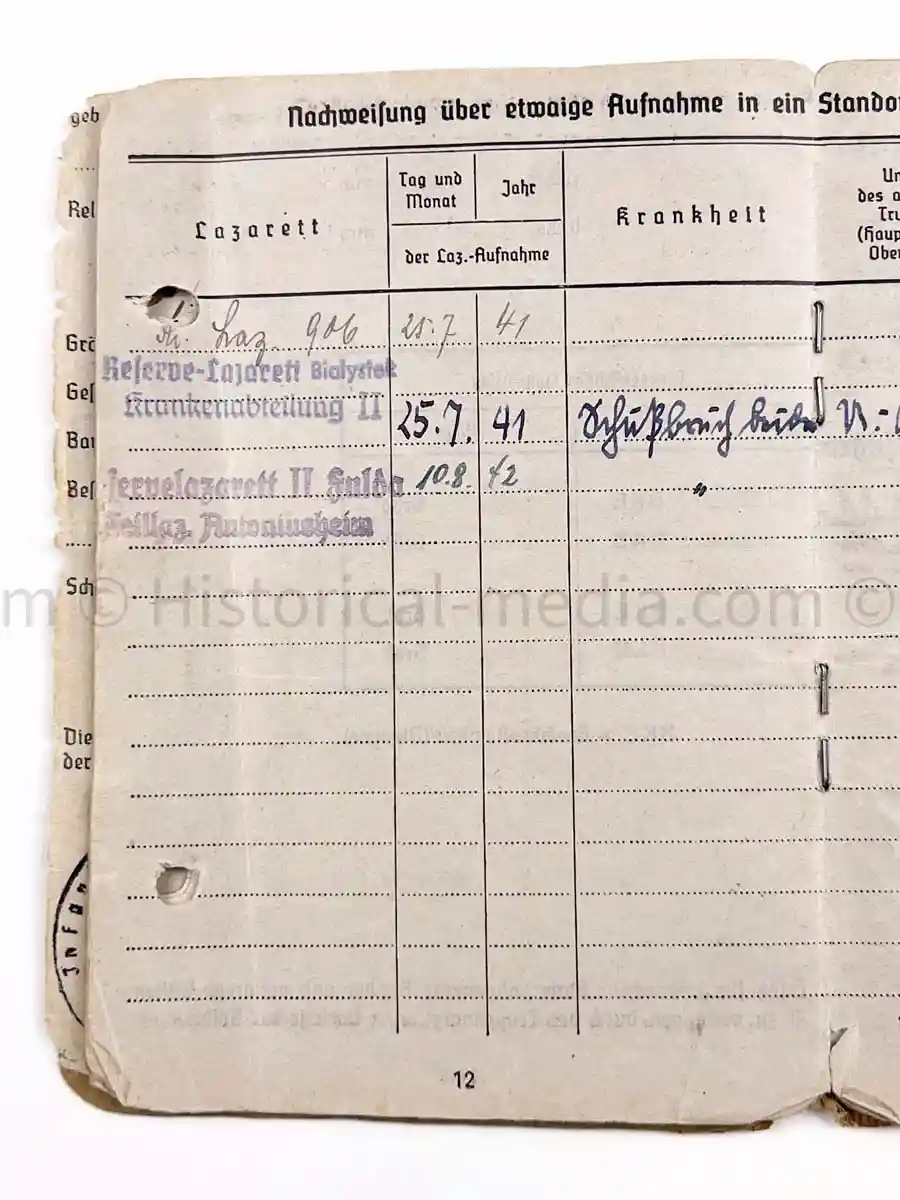 geb
Nachweisung über etwaige Aufnahme in ein Stando
Rel
Lazarett
Tag und
Monat
Jahr
der Laz.-Aufnahme
Krankheit
Un
des a
Tru
(Haup
Ober
Grö
Laz. 906 25.7 41
Reserve-Lazarett Bialystok
Ges
Krankenabteilung II
Bau
25.7. 41 Schußbruch beider U.-
Bes
servelazarett II Fulda 10.8. 42 "
Teillaz. Antoniusheim
Sch
m © Historical-media.com ©
Die
der
Infan
12